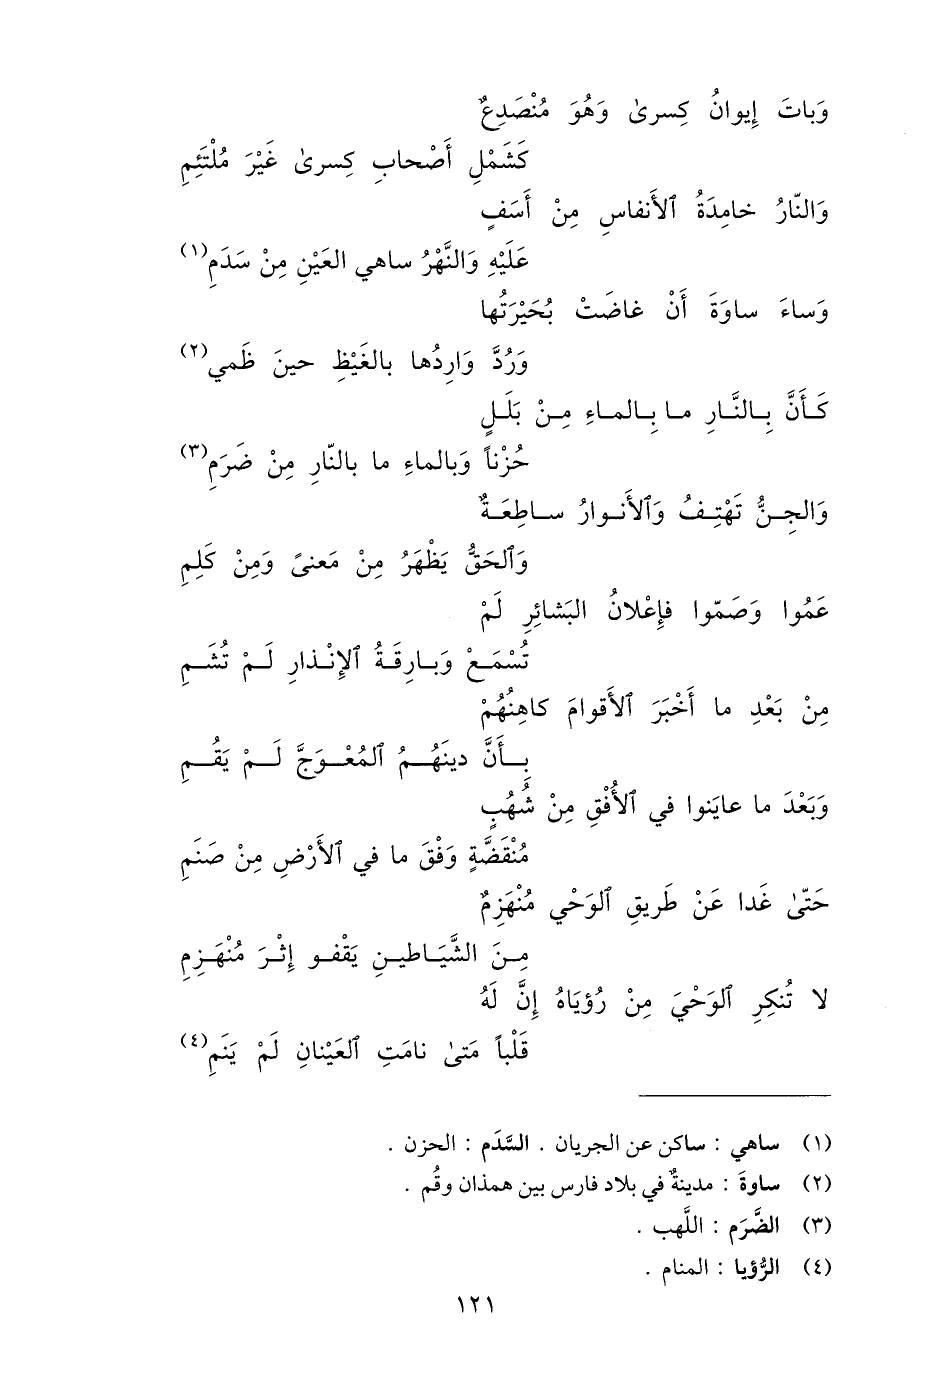 وَباتَ إيوانُ كِسرىٰ وَهُوَ مُنْصَدِعٌ
كَشَمْلِ أَصْحابِ كِسرىٰ غَيْرَ مُلْتَئِمِ
وَالنّارُ خامِدَةُ ٱلأَنفاسِ مِنْ أَسَفٍ
عَلَيْهِ وَالنَّهْرُ ساهي العَيْنِ مِنْ سَدَمِ(١)
وَساءَ ساوَةَ أَنْ غاضَتْ بُحَيْرَتُها
وَرُدَّ وَارِدُها بالغَيْظِ حينَ ظَمي(٢)
كَأَنَّ بِالنَّارِ ما بِالماءِ مِنْ بَلَلٍ
حُزْناً وَبالماءِ ما بالنّارِ مِنْ ضَرَمِ(٣)
وَالجِنُّ تَهْتِفُ وَٱلأَنوارُ ساطِعَةٌ
وَٱلحَقُّ يَظْهَرُ مِنْ مَعنىً وَمِنْ كَلِمِ
عَمُوا وَصَمّوا فإعْلانُ البَشائِرِ لَمْ
تُسْمَعْ وَبارِقَةُ ٱلإنْذارِ لَمْ تُشَمِ
مِنْ بَعْدِ ما أَخْبَرَ ٱلأَقوامَ كاهِنُهُمْ
بِأَنَّ دينَهُمُ ٱلمُعْوَجَّ لَمْ يَقُمِ
وَبَعْدَ ما عايَنوا في ٱلأُفْقِ مِنْ شُهُبٍ
مُنْقَضَّةٍ وَفْقَ ما في ٱلأَرْضِ مِنْ صَنَمِ
حَتّىٰ غَدا عَنْ طَريقِ ٱلوَحْيِ مُنْهَزِمٌ
مِنَ الشَّيَاطينِ يَقْفو إثْرَ مُنْهَزِمِ
لا تُنكِرِ ٱلوَحْيَ مِنْ رُؤيَاهُ إنَّ لَهُ
قَلْباً مَتىٰ نامَتِ ٱلعَيْنانِ لَمْ يَنَمِ(٤)
(١) ساهي : ساكن عن الجريان . السَّدَم : الحزن .
(٢) ساوةَ : مدينةٌ في بلاد فارس بين همذان وقُم .
(٣) الضَّرَم : اللَّهب .
(٤) الرُّؤيا : المنام .
١٢١